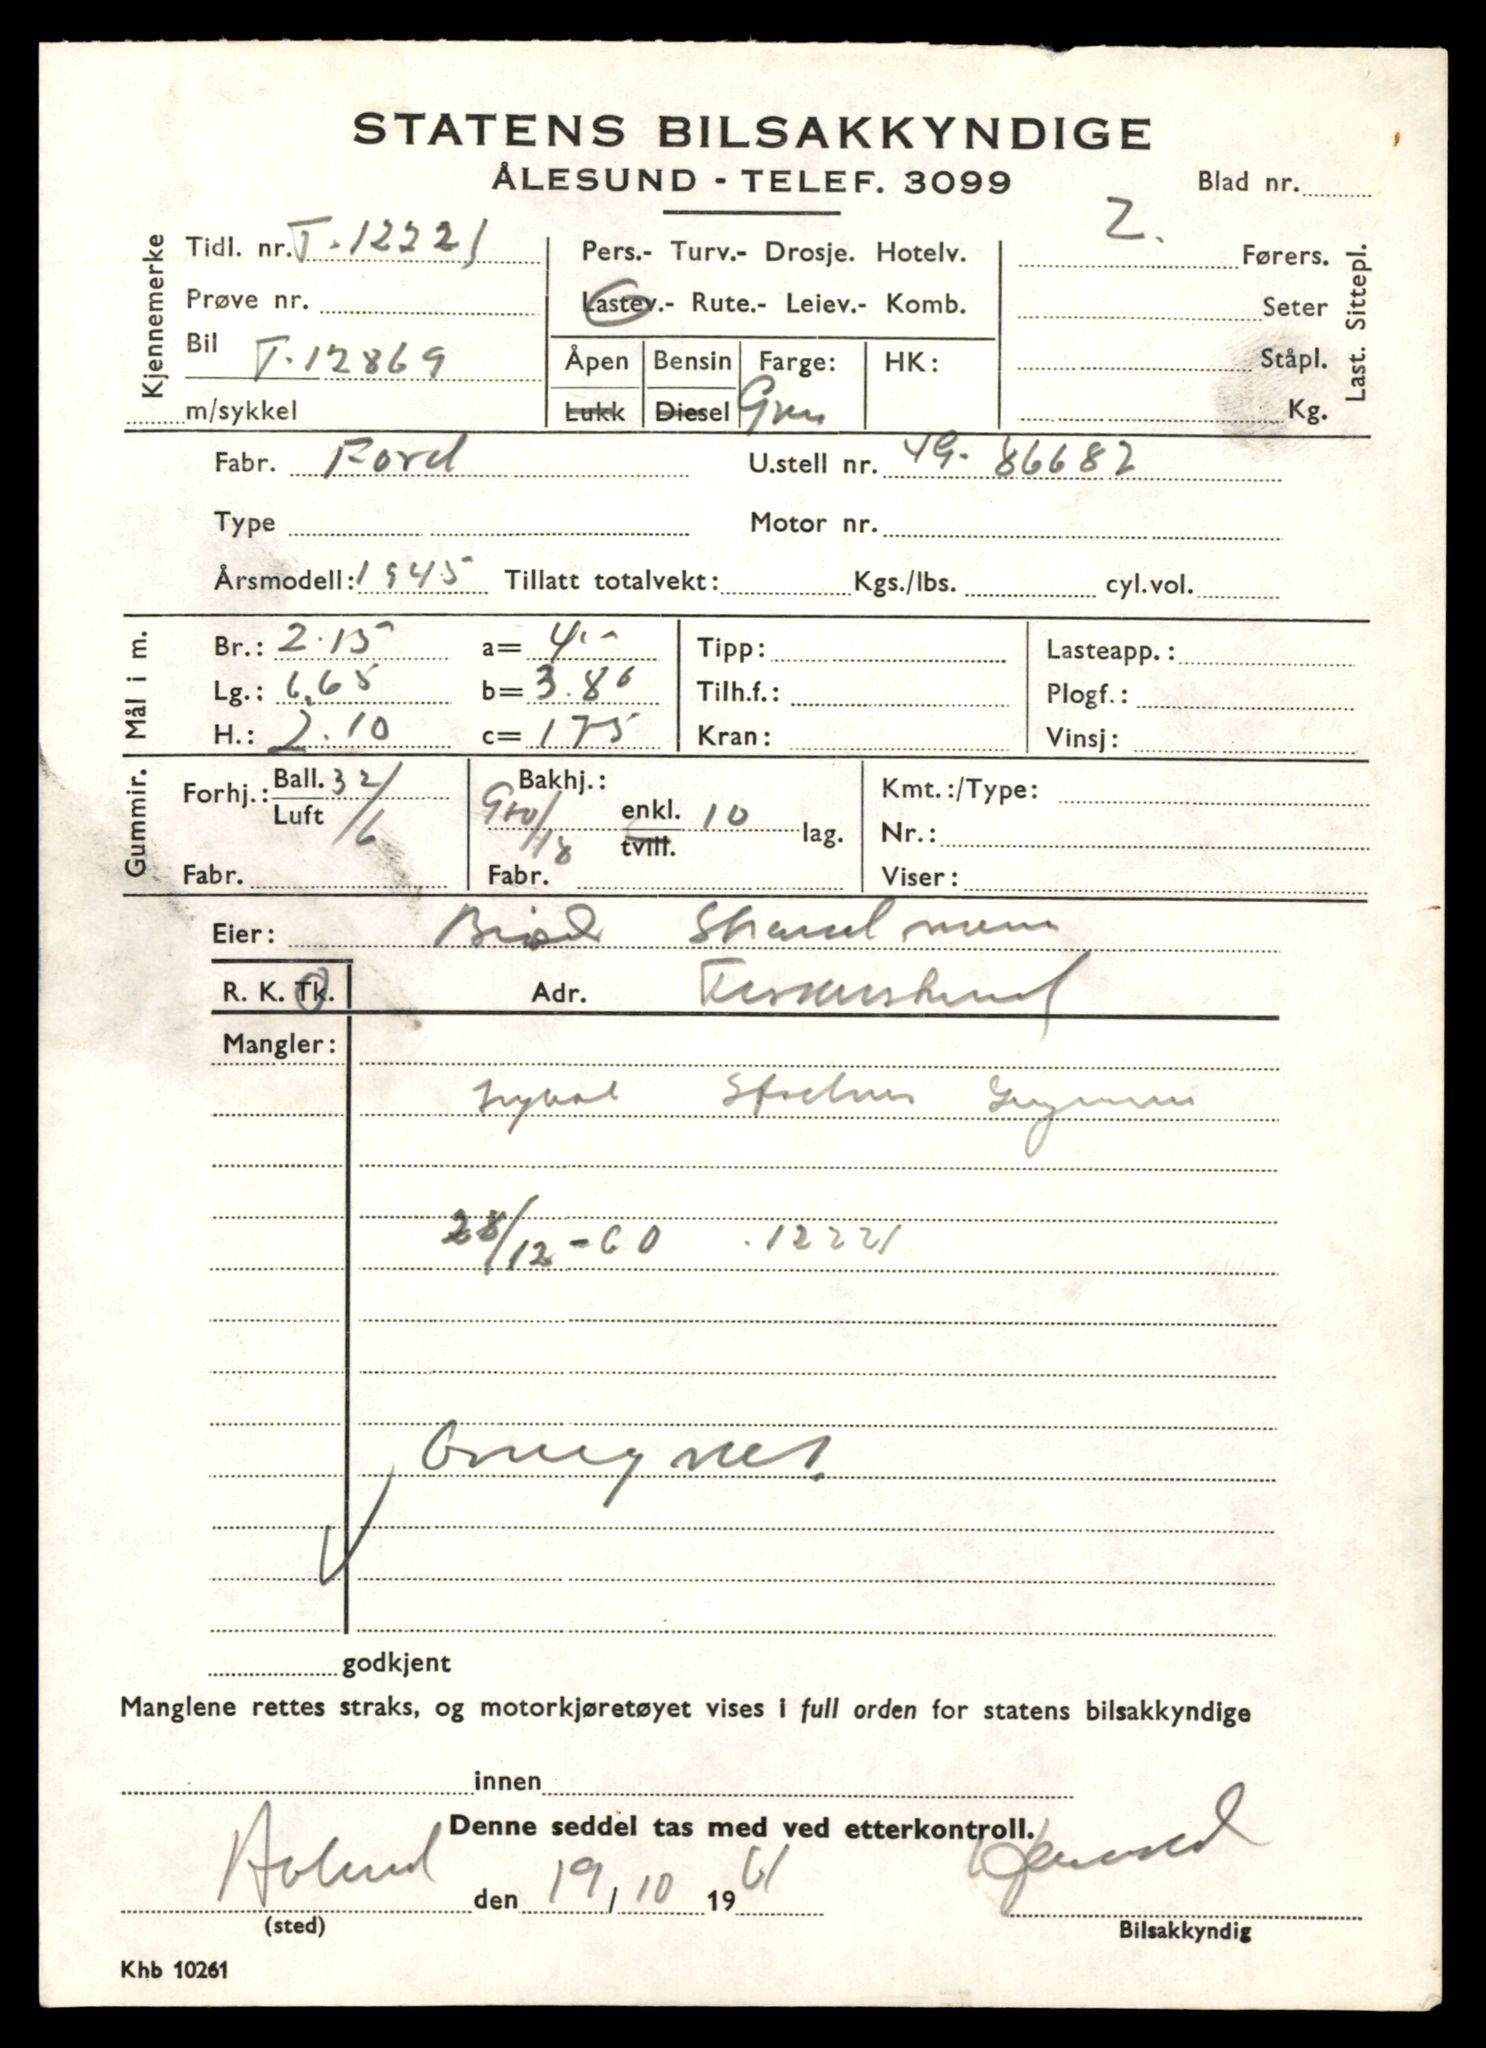 STATENS BILSAKKYNDIGE
ÅLESUND - TELEF. 3099
Blad nr.
Kjennemerke
Tidl. nr. T-12221
Prøve nr.
Bil T-12869
m/sykkel
Pers.- Turv.- Drosje. Hotelv.
Lastev.- Rute.- Leiev.- Komb.
Åpen Bensin Farge: HK:
Lukk Diesel
2.
Førers.
Seter
Ståpl.
Kg.
Last. Sittepl.
Fabr. Ford U.stell nr. 49- 86682
Type Motor nr.
Årsmodell: 1945 Tillatt totalvekt: Kgs./lbs. cyl.vol.
Mål i m.
Br.: 2.15 a= 4.- Tipp: Lasteapp.:
Lg.: 6.65 b= 3.86 Tilh.f.: Plogf.:
H.: 2.10 c= 175 Kran: Vinsj:
Gummir.
Forhj.: Ball. 32/6 Bakhj.: Kmt.:/Type:
Luft enkl. 10 lag. Nr.:
tvill.
Fabr. Fabr. Viser:
Eier:
R. K. Tk. Adr.
Mangler:
28/12-60 .12221
Omregnet.
godkjent
Manglene rettes straks, og motorkjøretøyet vises i full orden for statens bilsakkyndige
innen
Denne seddel tas med ved etterkontroll.
den 19/10 1961
(sted) Bilsakkyndig
Khb 10261